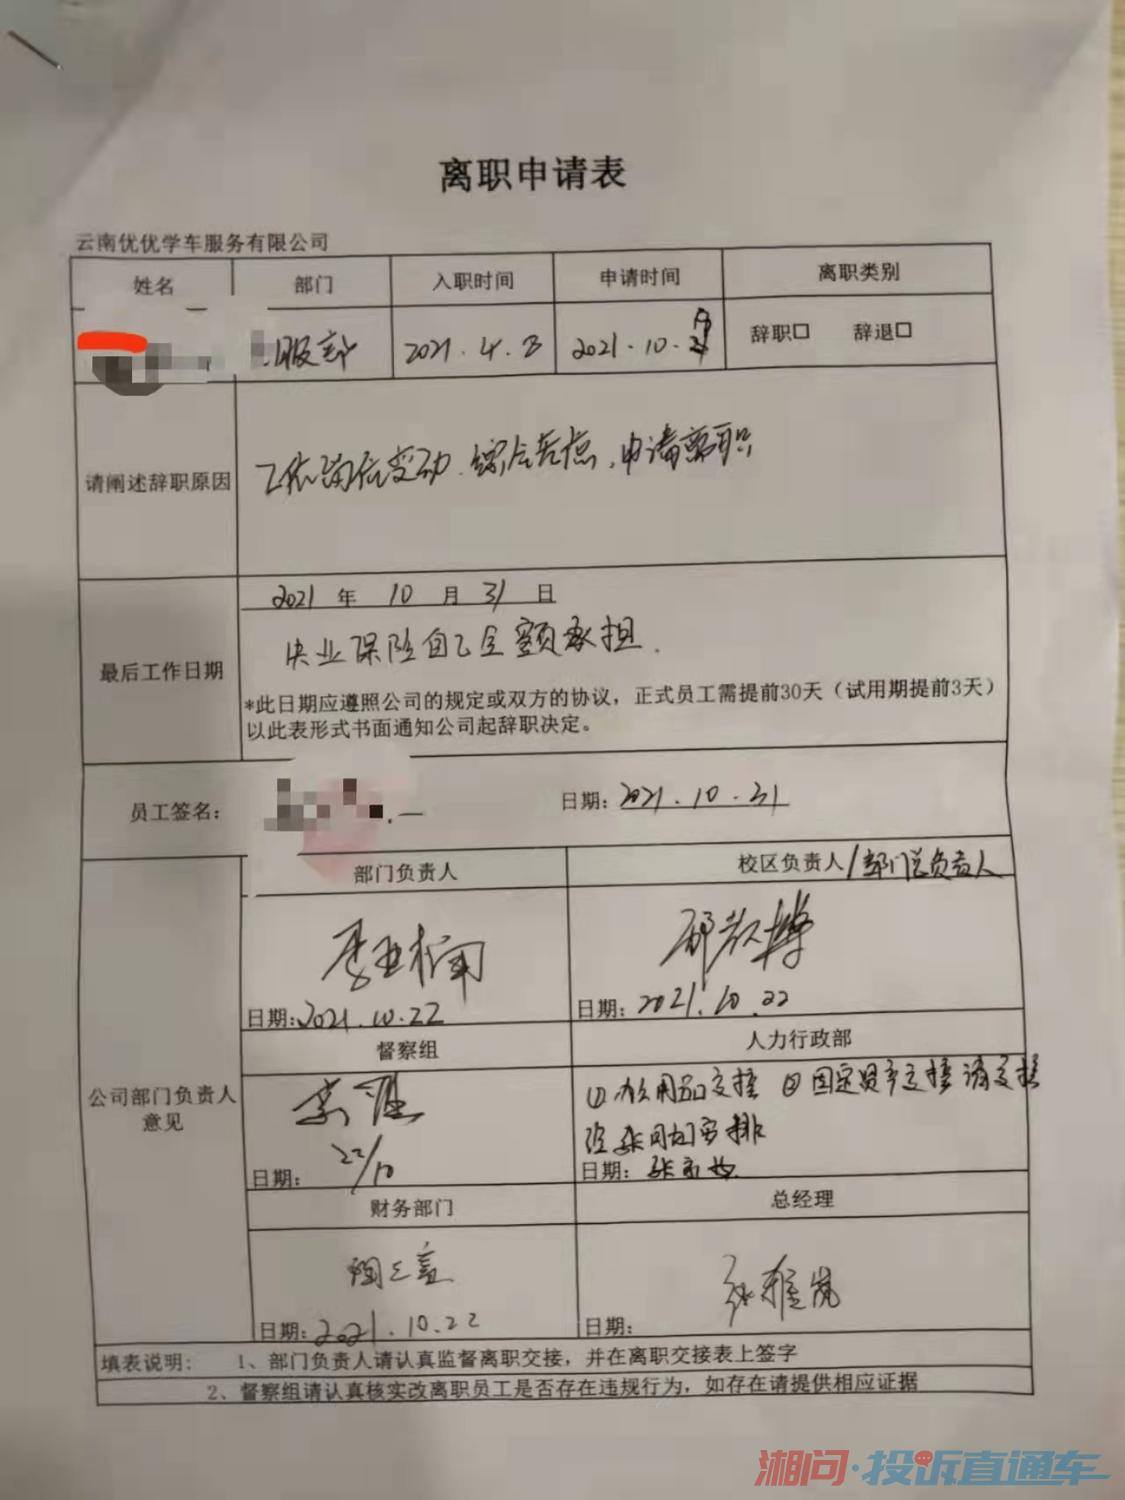 离职申请表
云南优优学车服务有限公司
姓名 部门 入职时间 申请时间 离职类别
服部 2021.4.3 2021.10. 辞职□ 辞退□
请阐述辞职原因
工作岗位变动、综合考虑,申请离职
2021 年 10 月 31 日
失业保险自己全额承担.
最后工作日期
*此日期应遵照公司的规定或双方的协议,正式员工需提前30天(试用期提前3天)
以此表形式书面通知公司起辞职决定。
员工签名: 日期:2021.10.31
部门负责人 校区负责人/部门总负责人
日期:2021.10.22 日期:2021.10.22
督察组 人力行政部
公司部门负责人
意见
①办公用品交接 ②固定资产交接 请交接
安排
22/10
日期: 日期:
财务部门 总经理
张雅岚
日期:2021.10.22 日期:
填表说明: 1、部门负责人请认真监督离职交接,并在离职交接表上签字
2、督察组请认真核实改离职员工是否存在违规行为,如存在请提供相应证据
湘问·投诉直通车